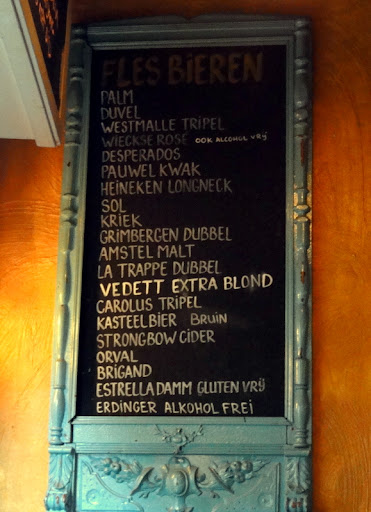 FLES BIEREN
PALM
DUVEL
WESTMALLE TRIPEL
WIECKSE ROSE OOK ALCOHOL VRIJ
DESPERADOS
PAUWEL KWAK
HEINEKEN LONGNECK
SOL
KRIEK
GRIMBERGEN DUBBEL
AMSTEL MALT
LA TRAPPE DUBBEL
VEDETT EXTRA BLOND
CAROLUS TRIPEL
KASTEELBIER BRUIN
STRONGBOW CIDER
ORVAL
BRIGAND
ESTRELLA DAMM GLUTEN VRIJ
ERDINGER ALKOHOL FREI